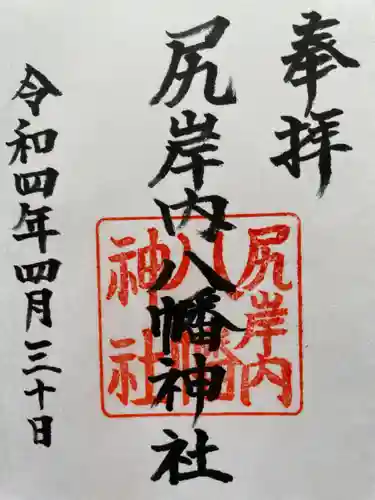 奉拝
尻岸内八幡神社
令和四年四月三十日
尻岸内
八幡
神社